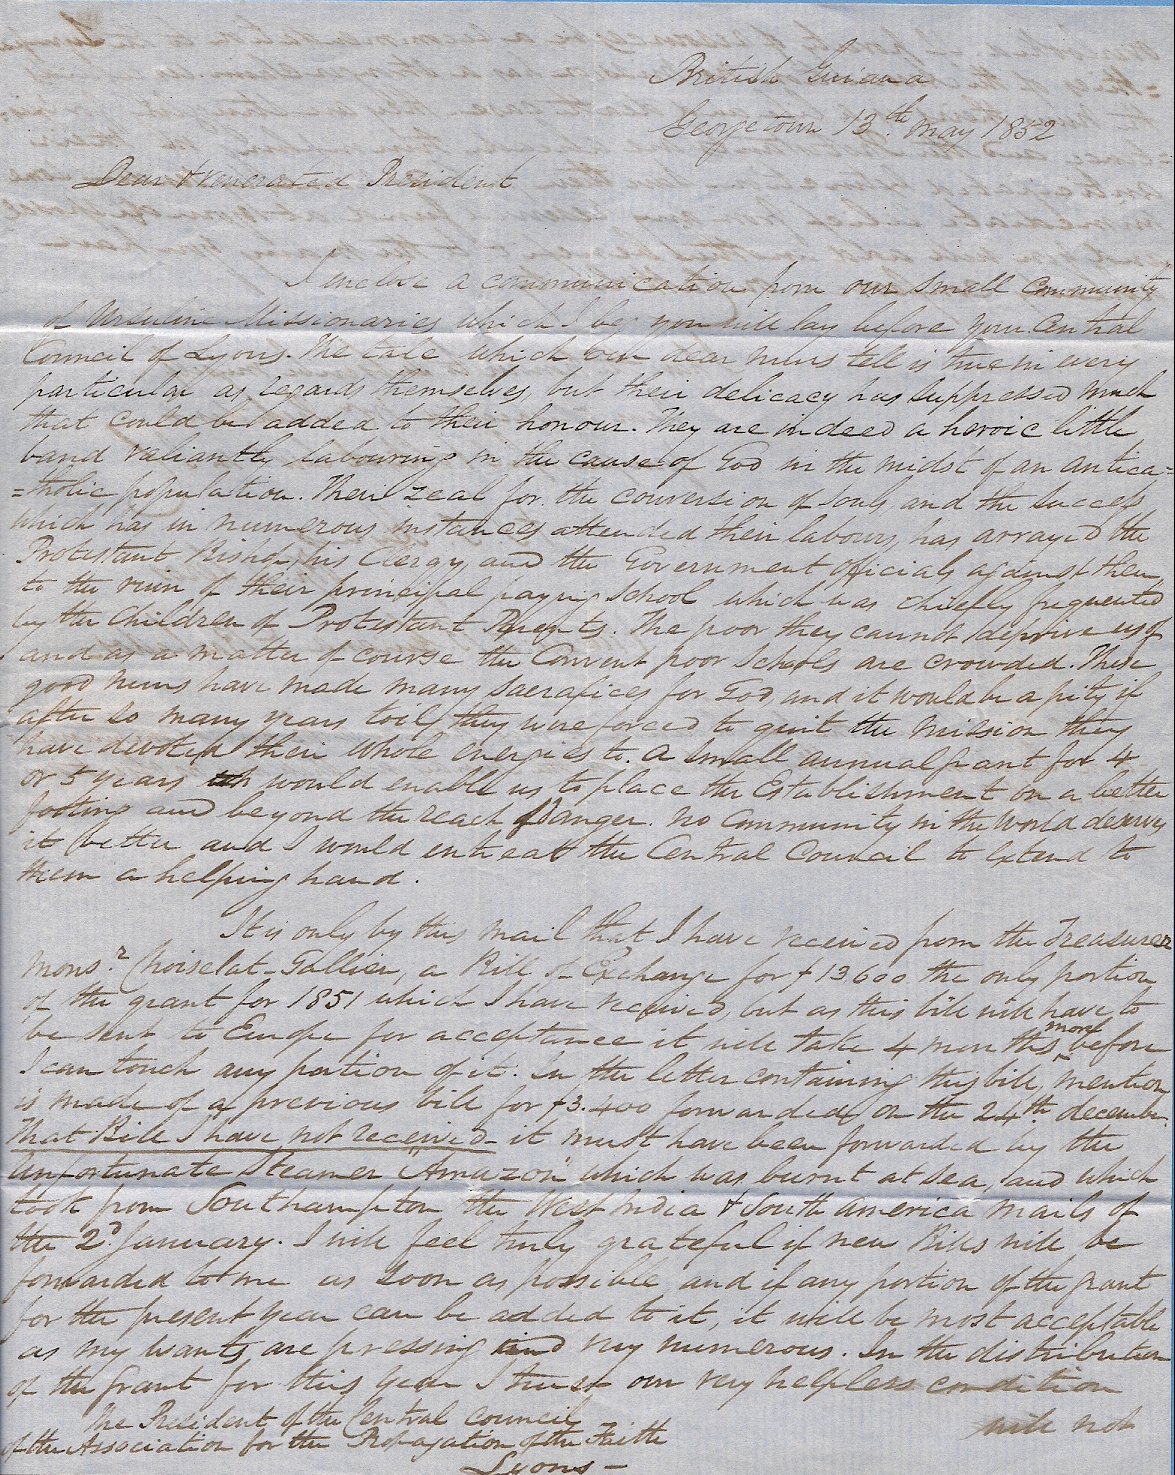 British Guiana
Georgetown 13th. May 1852
Dear & Venerated President
I enclose a communication from our small Community
of Ursuline Missionaries which I beg you will lay before your Central
Council of Lyons. The tale which our dear nuns tell is true in every
particular as regards themselves, but their delicacy has suppressed much
that could be added to their honour. They are indeed a heroic little
band valiantly labouring in the cause of God in the midst of an antica=
=tholic population. Their zeal for the conversion of souls, and the success
which has in numerous instances attended their labours, has arrayed the
Protestant Bishop, his Clergy, and the Government officials against them,
to the ruin of their principal paying School which was chiefly frequented
by the Children of Protestant Parents. The poor they cannot deprive us of
and as a matter of course the Convent poor Schools are crowded. These
good nuns have made many sacrafices for God, and it would be a pity if
after so many years toil, they were forced to quit the mission they
have devoted their whole energies to. A small annual grant for 4
or 5 years would enable us to place the Establishment on a better
footing and beyond the reach of danger. No Community in the World deserves
it better and I would entreat the Central Council to extend to
them a helping hand.
It is only by this mail that I have received from the Treasurer
Monsr. Choiselat-Gallien, a Bill of Exchange for f 13600 the only portion
of the grant for 1851 which I have received, but as this bill will have to
be sent to Europe for acceptance it will take 4 months more before
I can touch any portion of it. In the letter containing this bill, mention
is made of a previous bill for f 3.400 forwarded on the 24th. december.
That Bill I have not received - it must have been forwarded by the
unfortunate Steamer "Amazon" which was burnt at sea, and which
took from Southampton the West India & South America mails of
the 2d. January. I will feel truly grateful if new Bills will be
forwarded to me as soon as possible and if any portion of the grant
for the present year can be added to it, it will be most acceptable
as my wants are pressing and very numerous. In the distribution
of the grant for this year I trust our very helpless condition
will not
The President of the Central Council
of the Association for the Propagation of the Faith
Lyons -